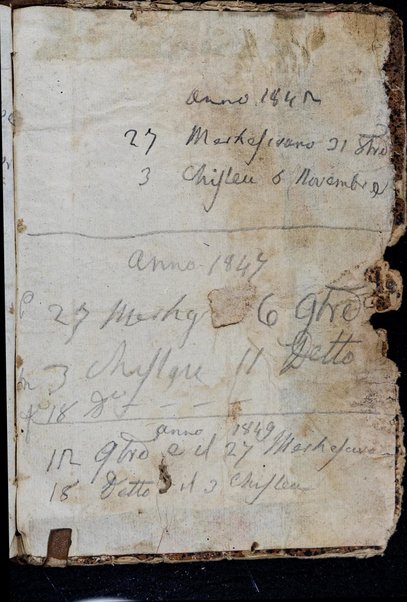 anno 1845
27 Markesivano 31 8bre
3 Chisleu 6 Novembre
anno 1847
27 Markes 6 9bre
3 Chisleu 11 Detto
18 Do
anno 1849
12 9bro e il 27 Markesuva
18 Detto il 3 Chisleu